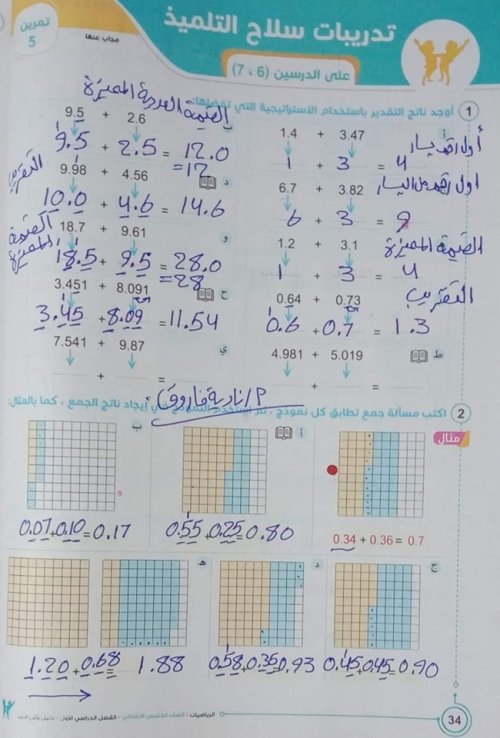 تدريبات سلاح التلميذ
تمرين
5
مجاب عنها
على الدرسين (6 ، 7)
1 أوجد ناتج التقدير باستخدام الاستراتيجية التي تفضلها:
القيمة العددية المميزة
أول رقم يسار
1.4 + 3.47
1 + 3 = 4
9.5 + 2.6
9.5 + 2.5 = 12.0
=12
أول رقم من اليسار
6.7 + 3.82
6 + 3 = 9
التقريب
د
9.98 + 4.56
10.0 + 4.6 = 14.6
القيمة المميزة
1.2 + 3.1
1 + 3 = 4
القيمة المميزة
و
18.7 + 9.61
18.5 + 9.5 = 28.0
=28
التقريب
0.64 + 0.73
0.6 + 0.7 = 1.3
ح
3.451 + 8.091
3.45 + 8.09 = 11.54
ط
4.981 + 5.019
+ =
ي
7.541 + 9.87
+ =
P/نادية فاروق
2 اكتب مسألة جمع تطابق كل نموذج ، إيجاد ناتج الجمع ، كما بالمثال:
مثال
0.34 + 0.36 = 0.7
أ
0.55 + 0.25 = 0.80
ب
0.07 + 0.10 = 0.17
ج
0.45 + 0.45 = 0.90
د
0.58 + 0.35 = 0.93
هـ
1.20 + 0.68 = 1.88
34
الرياضيات - الصف الخامس الابتدائي - الفصل الدراسي الأول